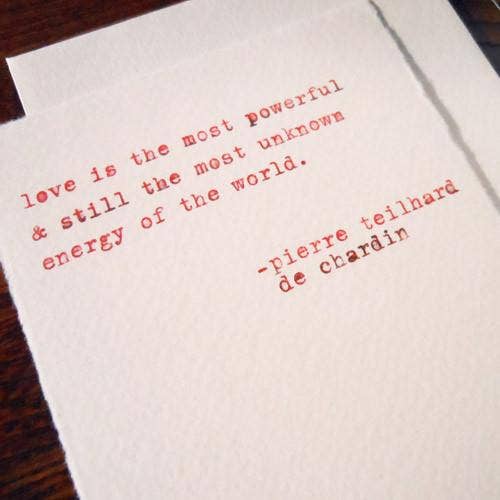 love is the most powerful
& still the most unknown
energy of the world.
-pierre teilhard
de chardin